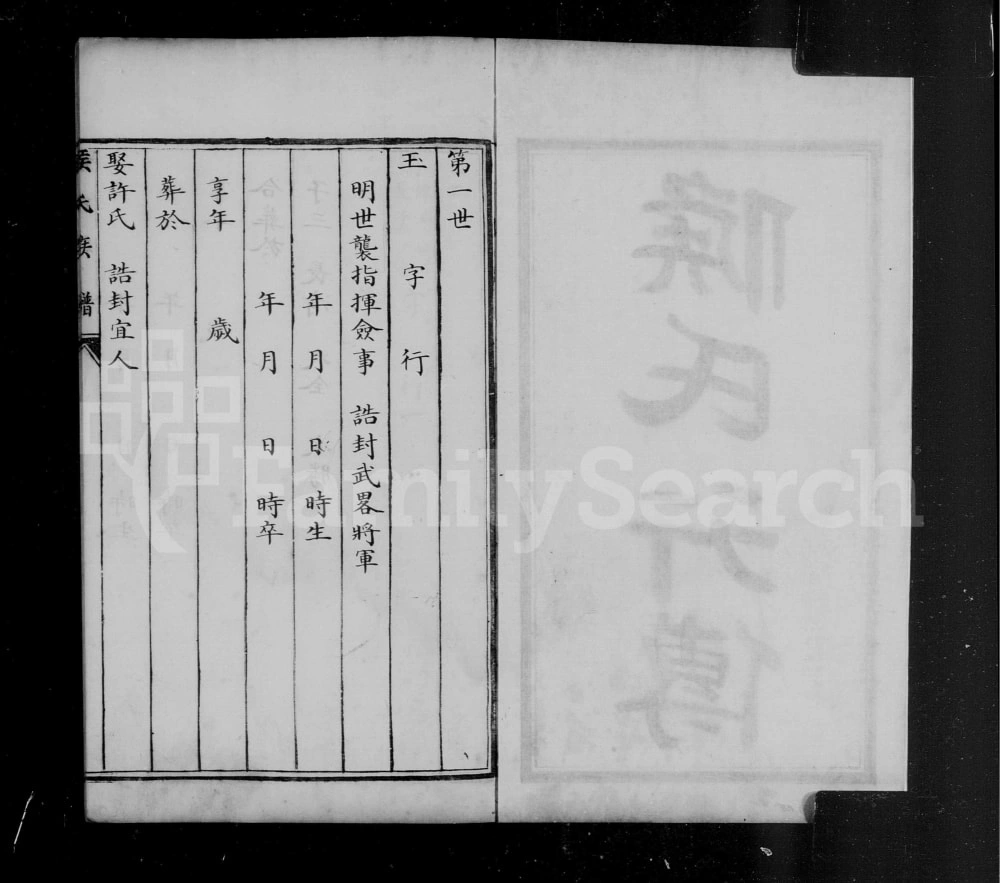 第一世
玉 字 行
明世襲指揮僉事 誥封武畧將軍
年 月 日 時生
年 月 日 時卒
享年 歲
葬於
娶許氏 誥封宜人
侯氏族譜
FamilySearch